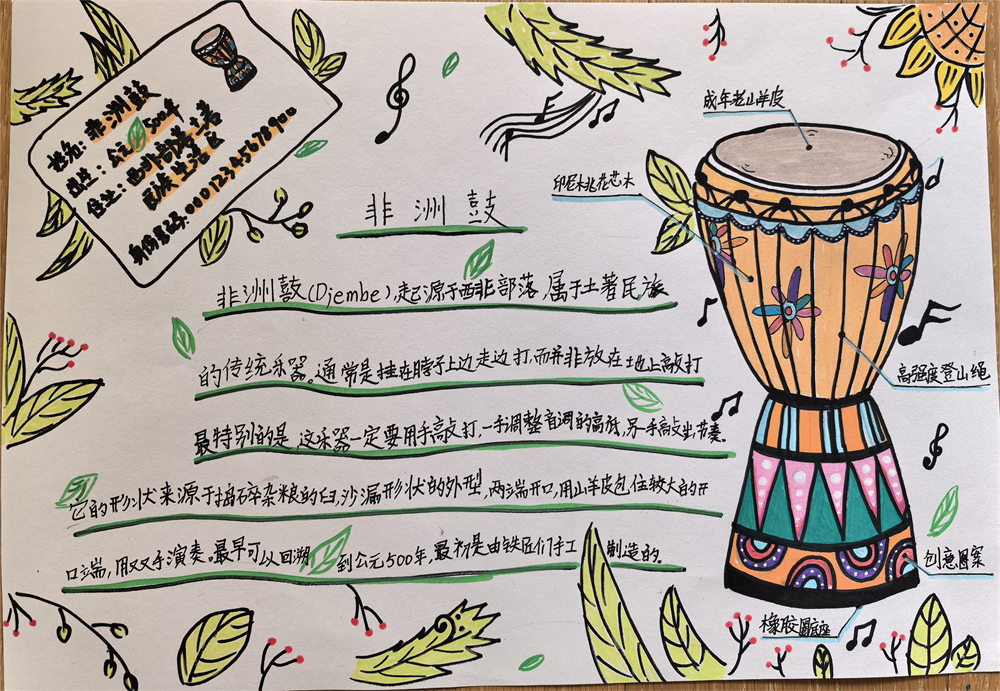 姓名：非洲鼓
公元500年
住址：西非部落土著
民族生活区
身份号码：00012345678900
非洲鼓
非洲鼓(Djembe)，起源于西非部落，属于土著民族
的传统乐器。通常是挂在脖子上边走边打，而并非放在地上敲打
最特别的是，这乐器一定要用手敲打，一手调整音调的高低，另一手敲出节奏。
它的形状来源于捣碎杂粮的臼，沙漏形状的外型，两端开口，用山羊皮包住较大的开
口端，用双手演奏。最早可以回溯到公元500年，最初是由铁匠们手工制造的。
成年老山羊皮
印尼桃花芯木
高强度登山绳
创意图案
橡胶圆底座